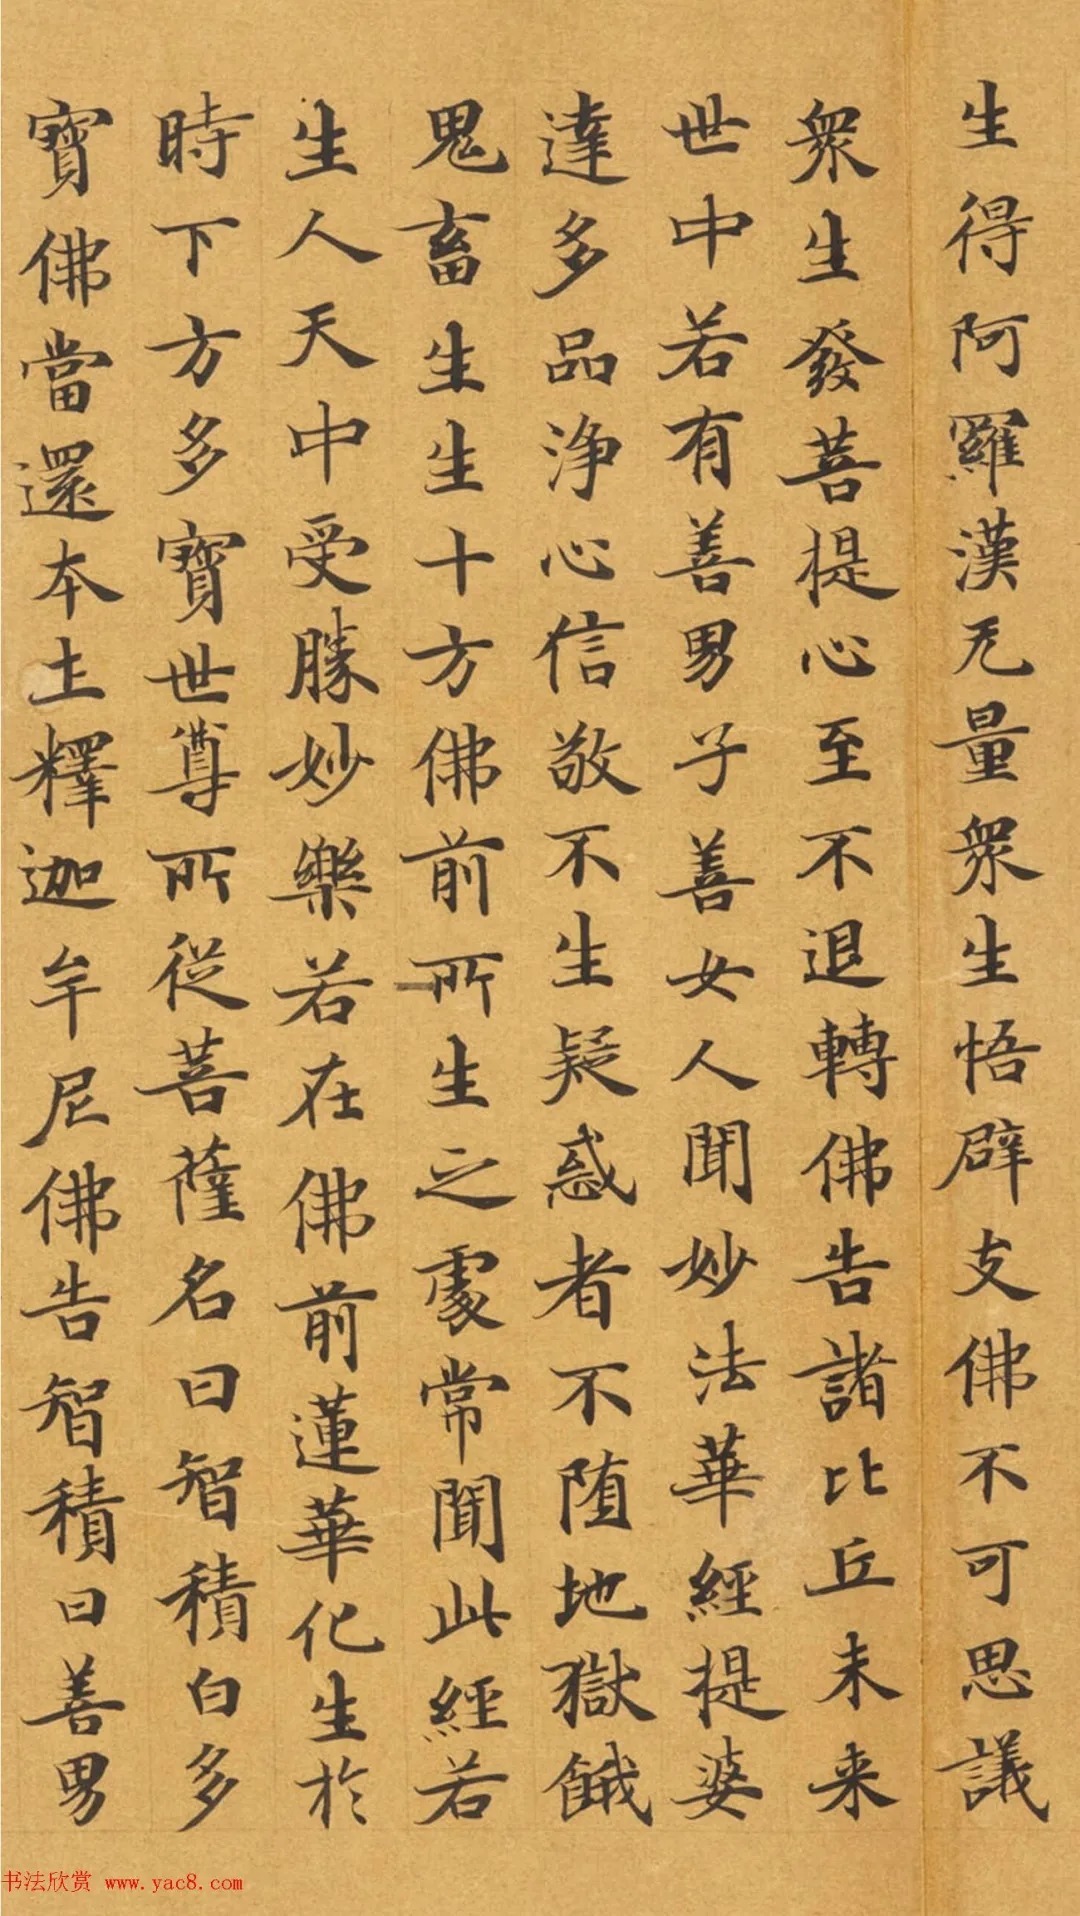 生得阿羅漢无量眾生悟辟支佛不可思議
眾生發菩提心至不退轉佛告諸比丘未来
世中若有善男子善女人聞妙法華經提婆
達多品淨心信敬不生疑惑者不堕地獄餓
鬼畜生生十方佛前所生之處常聞此經若
生人天中受勝妙樂若在佛前蓮華化生於
時下方多寶世尊所從菩薩名曰智積白多
寶佛當還本土釋迦牟尼佛告智積曰善男
书法欣赏 www.yac8.com